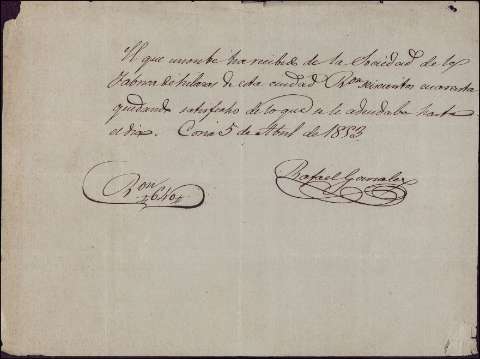 El que suscribe ha recibido de la Sociedad de la
fabrica de hilados de esta ciudad Rvon seiscientos cuarenta
quedando satisfecho de lo que se le adeudaba hasta
el dia. Coria 5 de Abril de 1853.
Rafael Gonzalez
Rvon
640